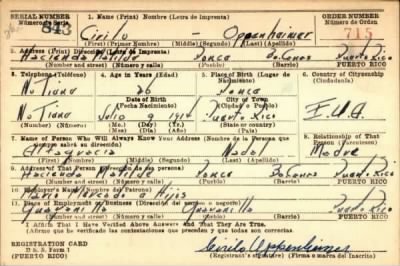 SERIAL NUMBER
Número de Serie
843
1. Name (Print) Nombre (Letra de Imprenta)
Cirilo - Oppenheimer
(First) (Primer Nombre) (Middle) (Segundo) (Last) (Apellido)
ORDER NUMBER
Número de Orden
715
2. Address (Print) Dirección (Letra de Imprenta)
Hacienda Matilde Ponce Ponce Puerto Rico
Number and street) (Número y calle) (Town) (Pueblo) PUERTO RICO
3. Telephone (Teléfono)
No Tiene
No Tiene
(Number) (Número)
4. Age in Years (Edad)
26
Date of Birth
(Fecha Nacimiento)
Julio 9 1914
(Mo.) (Day) (Yr.)
5. Place of Birth (Lugar de Nacimiento)
Ponce
City of Town
(Ciudad o Pueblo)
Puerto Rico
6. Country of Citizenship
(Ciudadanía)
E.U.A.
7. Name of Person Who Will Always Know Your Address (Nombre de la Persona que siempre sabrá su dirección)
Altagracia Nadal
(First) (Nombre) (Middle) (Segundo) (Last) (Apellido)
8. Relationship of That Person
Madre
9. Address of That Person (Dirección de la persona)
Hacienda Matilde Ponce Ponce Puerto Rico
(Number and street) (Número y calle) (Town) (Pueblo) PUERTO RICO
10. Employer's Name (Nombre del Patrono)
Mario Mercado e Hijos
11. Place of Employment or Business (Dirección del empleo o negocio)
Guayanilla Guayanilla Puerto Rico
(Number and street) (Número y calle) (Town) (Pueblo) PUERTO RICO
I Affirm That I Have Verified Above Answers and That They Are True.
(Afirmo que he verificado las contestaciones que preceden y que todas son correctas.)
REGISTRATION CARD
D. S. S. Form 1
Cirilo Oppenheimer
(Registrant's signature) (Firma o marca del inscrito)